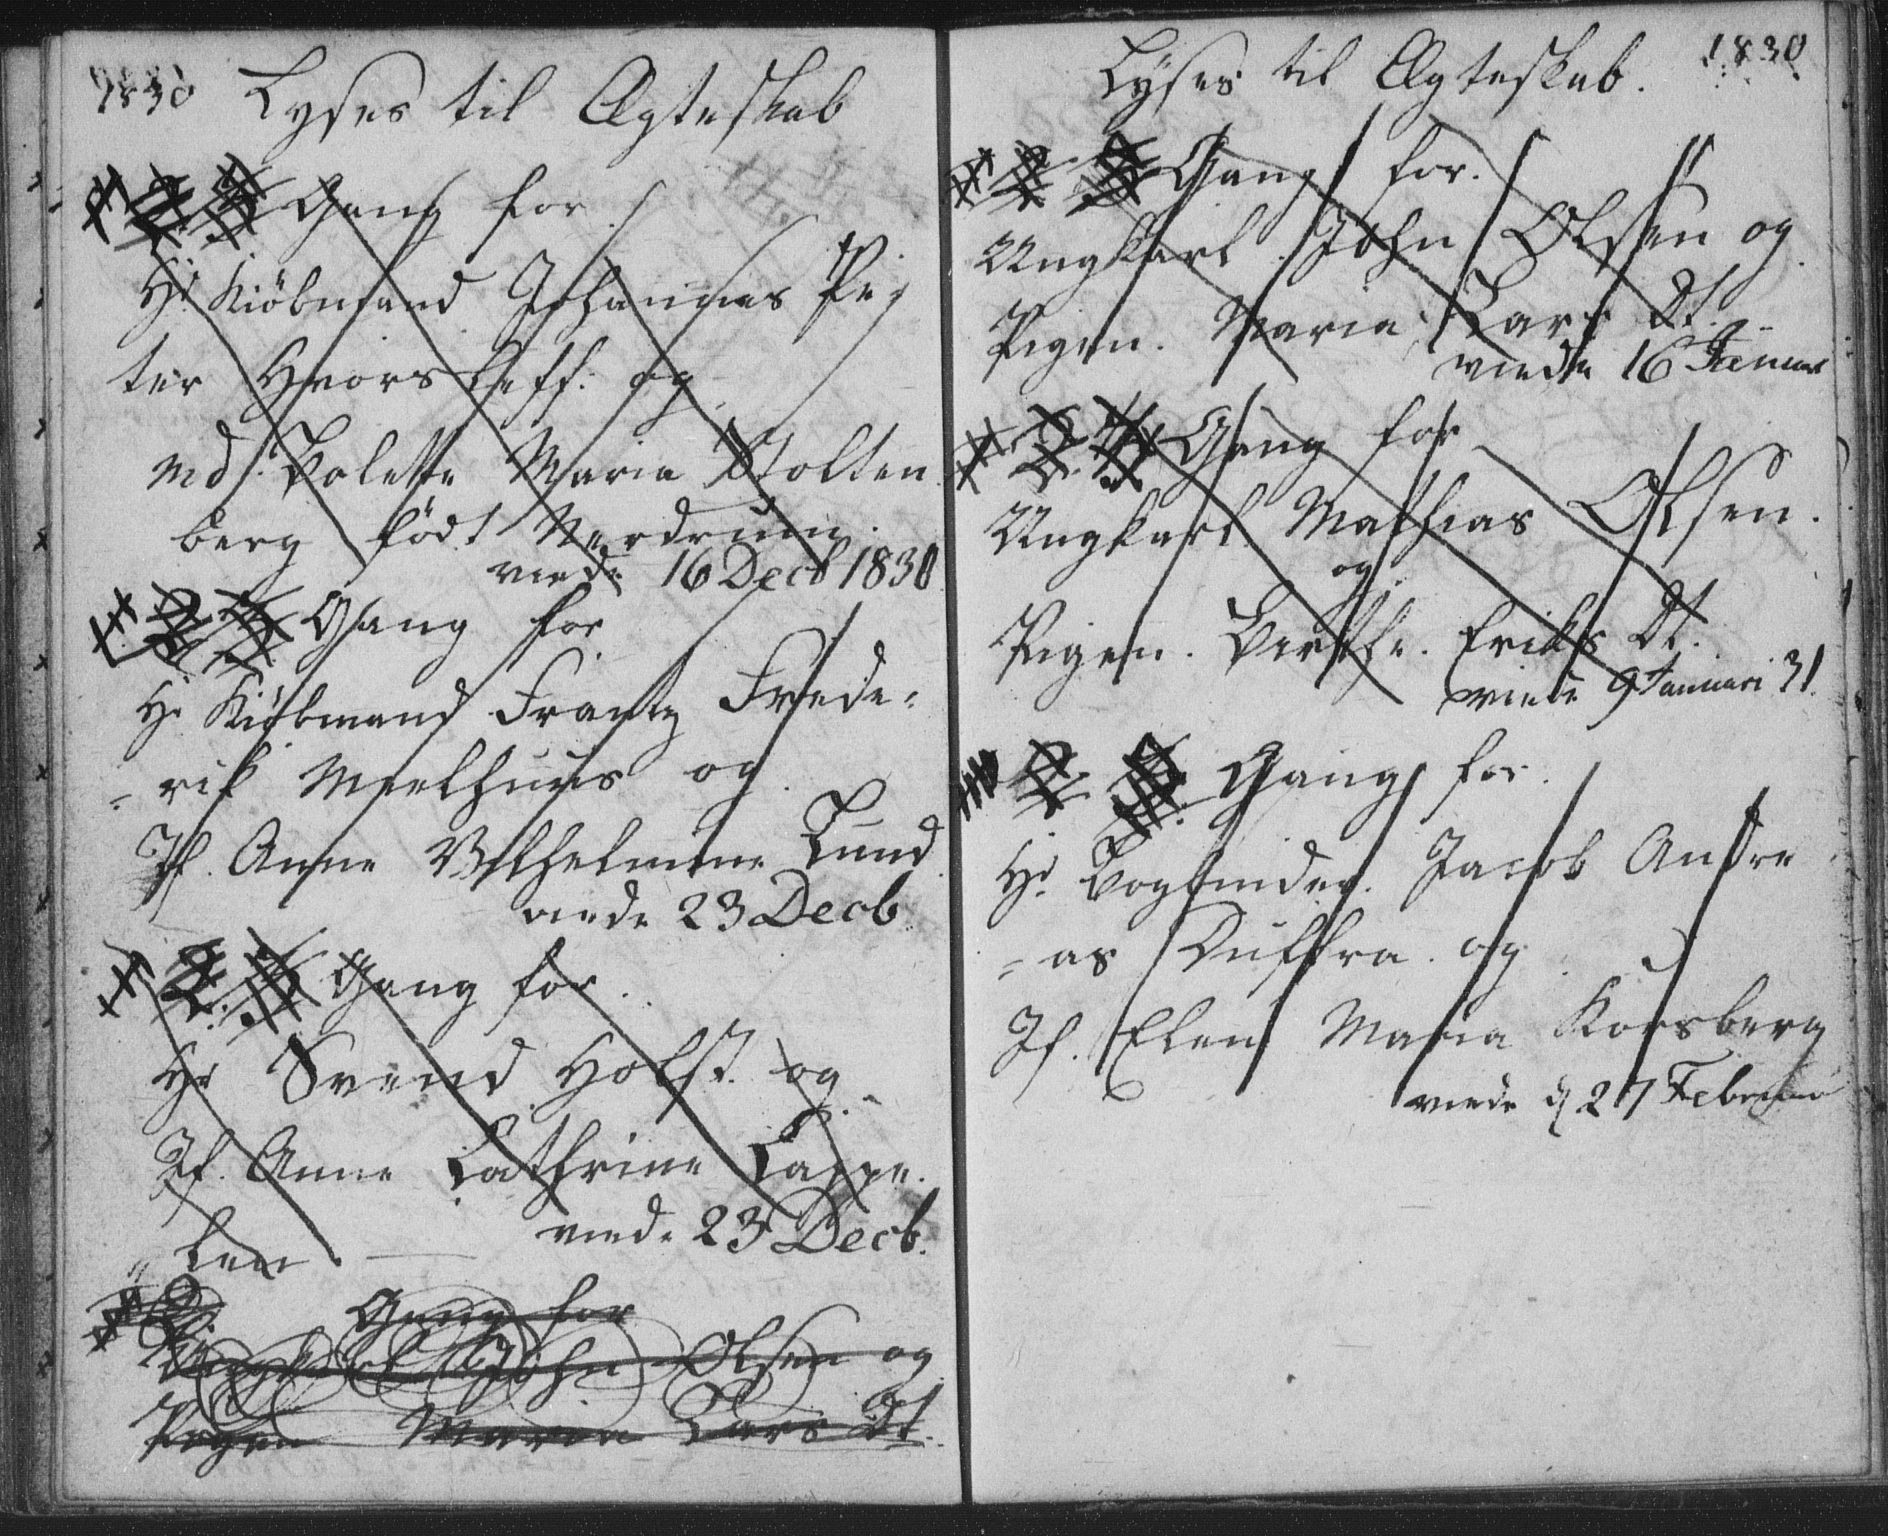 1830 Lyses til Ægteskab
1 2 3 Gang for
Hr Kiöbmand Johannes Pe
ter Hvorsleff. og
Md. Bolette Maria Stolten
berg född Nordrum.
viede 16 Decb 1830
1 2 3 Gang for
Hr Kiöbmand Frantz Frede-
-rik Meelhuus og
Jf. Anne Wilhelmine Lund
viede 23 Decb
1 2. 3 Gang for.
Hr Svend Holst. og
Jf. Anne Cathrine Cappe.
len
viede 23 Decb.
1 2. Gang for
Ungkarl John Olsen og
Pigen Maria Lars Dt.
Lyses til Ægteskab. 1830
1 2 3 Gang for.
Ungkarl John Olsen og
Pigen. Maria Lars Dt.
viede 16 Januar
1 2. 3 Gang for
Ungkarl. Mathias Olsen.
og
Pigen. Berthe. Eriks Dt.
viede 9 Januari 31.
1 2 3 Gang for.
Hr. Bogbinder. Jacob Andre
-as Duffra. og
Jf. Elen Maria Korsberg
viede d 27 Februar